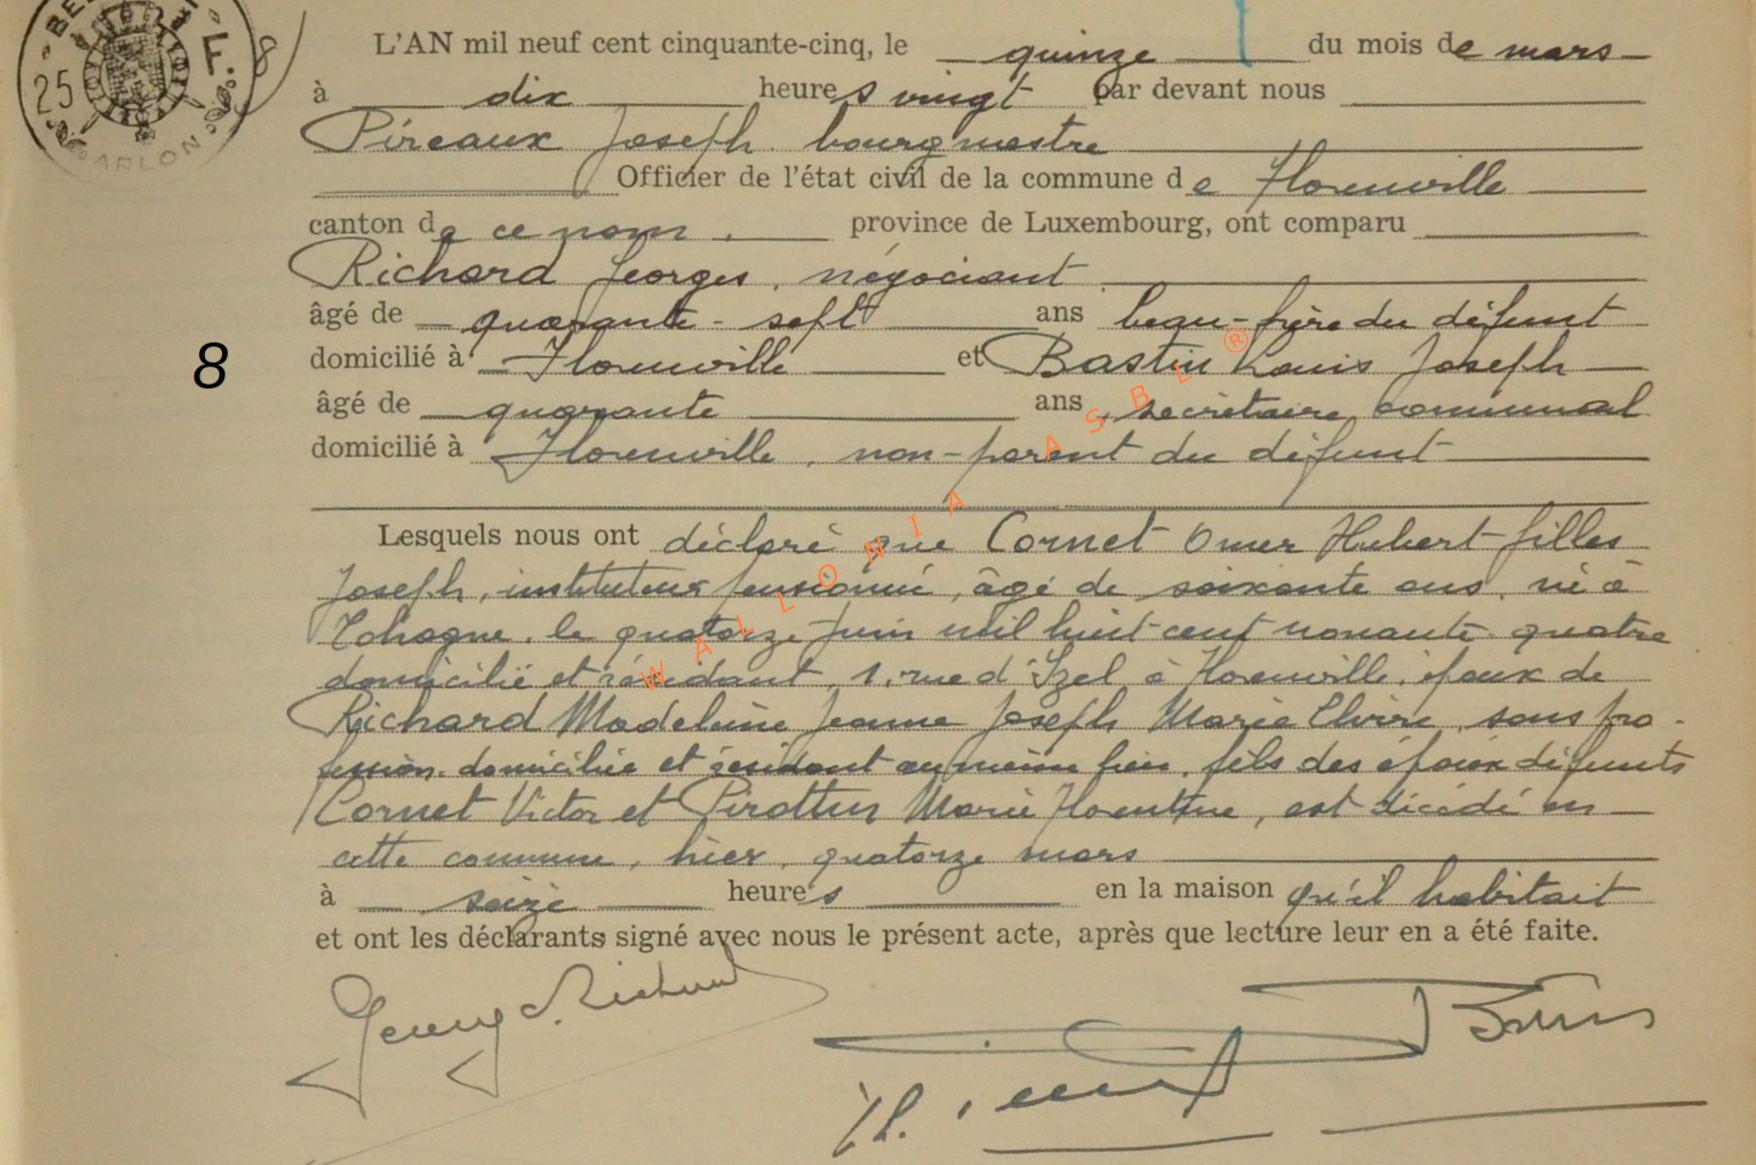 BE
25 F. 8
ARLON
L'AN mil neuf cent cinquante-cinq, le quinze du mois de mars
à dix heures vingt par devant nous
Pireaux Joseph. bourgmestre
Officier de l'état civil de la commune de Florenville
canton de ce nom. province de Luxembourg, ont comparu
Richard Georges, négociant
âgé de quarante-sept ans beau-frère du défunt
8
domicilié à Florenville et Bastin Louis Joseph
âgé de quarante ans, secrétaire communal
domicilié à Florenville, non-parent du défunt
Lesquels nous ont déclaré que Cornet Omer Hubert Gilles
Joseph, instituteur pensionné, âgé de soixante ans, né à
Tohogne, le quatorze juin mil huit cent nonante quatre
domicilié et résidant, 1, rue d'Izel à Florenville, époux de
Richard Madeleine Jeanne Joseph Marie Elvire, sans pro-
fession, domiciliée et résidant au même lieu, fils des époux défunts
Cornet Victor et Pirotton Marie Florentine, est décédé en
cette commune, hier, quatorze mars
à seize heures en la maison qu'il habitait
et ont les déclarants signé avec nous le présent acte, après que lecture leur en a été faite.
WALLONIA ASBL ®